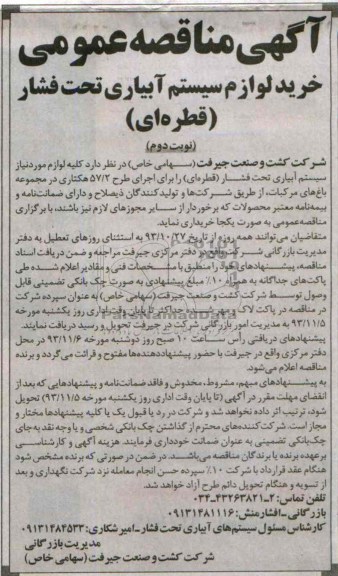 آگهی مناقصه عمومی
خرید لوازم سیستم آبیاری تحت فشار
(قطره‌ای)
(نوبت دوم)
شرکت کشت و صنعت جیرفت (سهامی خاص) در نظر دارد کلیه لوازم موردنیاز
سیستم آبیاری تحت فشار (قطره‌ای) را برای اجرای طرح ۵۷/۲ هکتاری در مجموعه
باغ‌های مرکبات، از طریق شرکت‌ها و تولیدکنندگان ذیصلاح و دارای ضمانت‌نامه و
بیمه‌نامه معتبر محصولات که برخوردار از سایر مجوزهای لازم نیز باشند، با برگزاری
مناقصه‌عمومی به صورت یکجا خریداری نماید.
متقاضیان می‌توانند همه روزه از تاریخ ۹۳/۱۰/۲۷ به استثنای روزهای تعطیل به دفتر
مدیریت بازرگانی شرکت واقع در دفتر مرکزی جیرفت مراجعه و ضمن دریافت اسناد
مناقصه، پیشنهادهای خود را منطبق با مشخصات فنی و مقادیر اعلام شده طی
پاکت‌های جداگانه به همراه ۱۰٪ مبلغ پیشنهادی به صورت چک بانکی تضمینی قابل
وصول توسط شرکت کشت و صنعت جیرفت (سهامی خاص) به عنوان سپرده شرکت
در مناقصه در پاکت لاک و مهر شده حداکثر تا پایان وقت اداری روز یکشنبه مورخه
۹۳/۱۱/۵ به مدیریت امور بازرگانی شرکت در جیرفت تحویل و رسید دریافت نمایند.
پیشنهادهای دریافتی رأس ساعت ۱۰ صبح روز دوشنبه مورخه ۹۳/۱۱/۶ در محل
دفتر مرکزی واقع در جیرفت با حضور پیشنهاددهنده‌ها مفتوح و قرائت می‌گردد و برنده
مناقصه اعلام می‌شود.
به پیشنهادهای مبهم، مشروط، مخدوش و فاقد ضمانت‌نامه و پیشنهادهایی که بعد از
انقضای مهلت مقرر در آگهی (تا پایان وقت اداری روز یکشنبه مورخه ۹۳/۱۱/۵) تحویل
شود، ترتیب اثر داده نخواهد شد و شرکت در رد یا قبول یک یا کلیه پیشنهادها مختار و
مجاز است. شرکت‌کننده‌های محترم از گذاشتن چک بانکی شخصی و یا وجه نقد به‌جای
چک‌بانکی تضمینی به عنوان ضمانت خودداری فرمایند. هزینه آگهی و کارشناسی
برعهده برنده یا برندگان مناقصه می‌باشد. در ضمن در صورتی که برنده مشخص شود
هنگام عقد قرارداد با شرکت ۱۰٪ سپرده حسن انجام معامله نزد شرکت نگهداری و بعد
از تسویه و هنگام تحویل دائم طرح آزاد خواهد شد.
تلفن تماس: ۲-۴۳۲۶۳۸۲۱-۰۳۴
بازرگانی-افشارمنش: ۰۹۱۳۱۴۸۱۱۱۶
کارشناس مسئول سیستم‌های آبیاری تحت فشار-امیر شکاری: ۰۹۱۳۱۴۸۴۵۳۳
مدیریت بازرگانی
شرکت کشت و صنعت جیرفت (سهامی خاص)